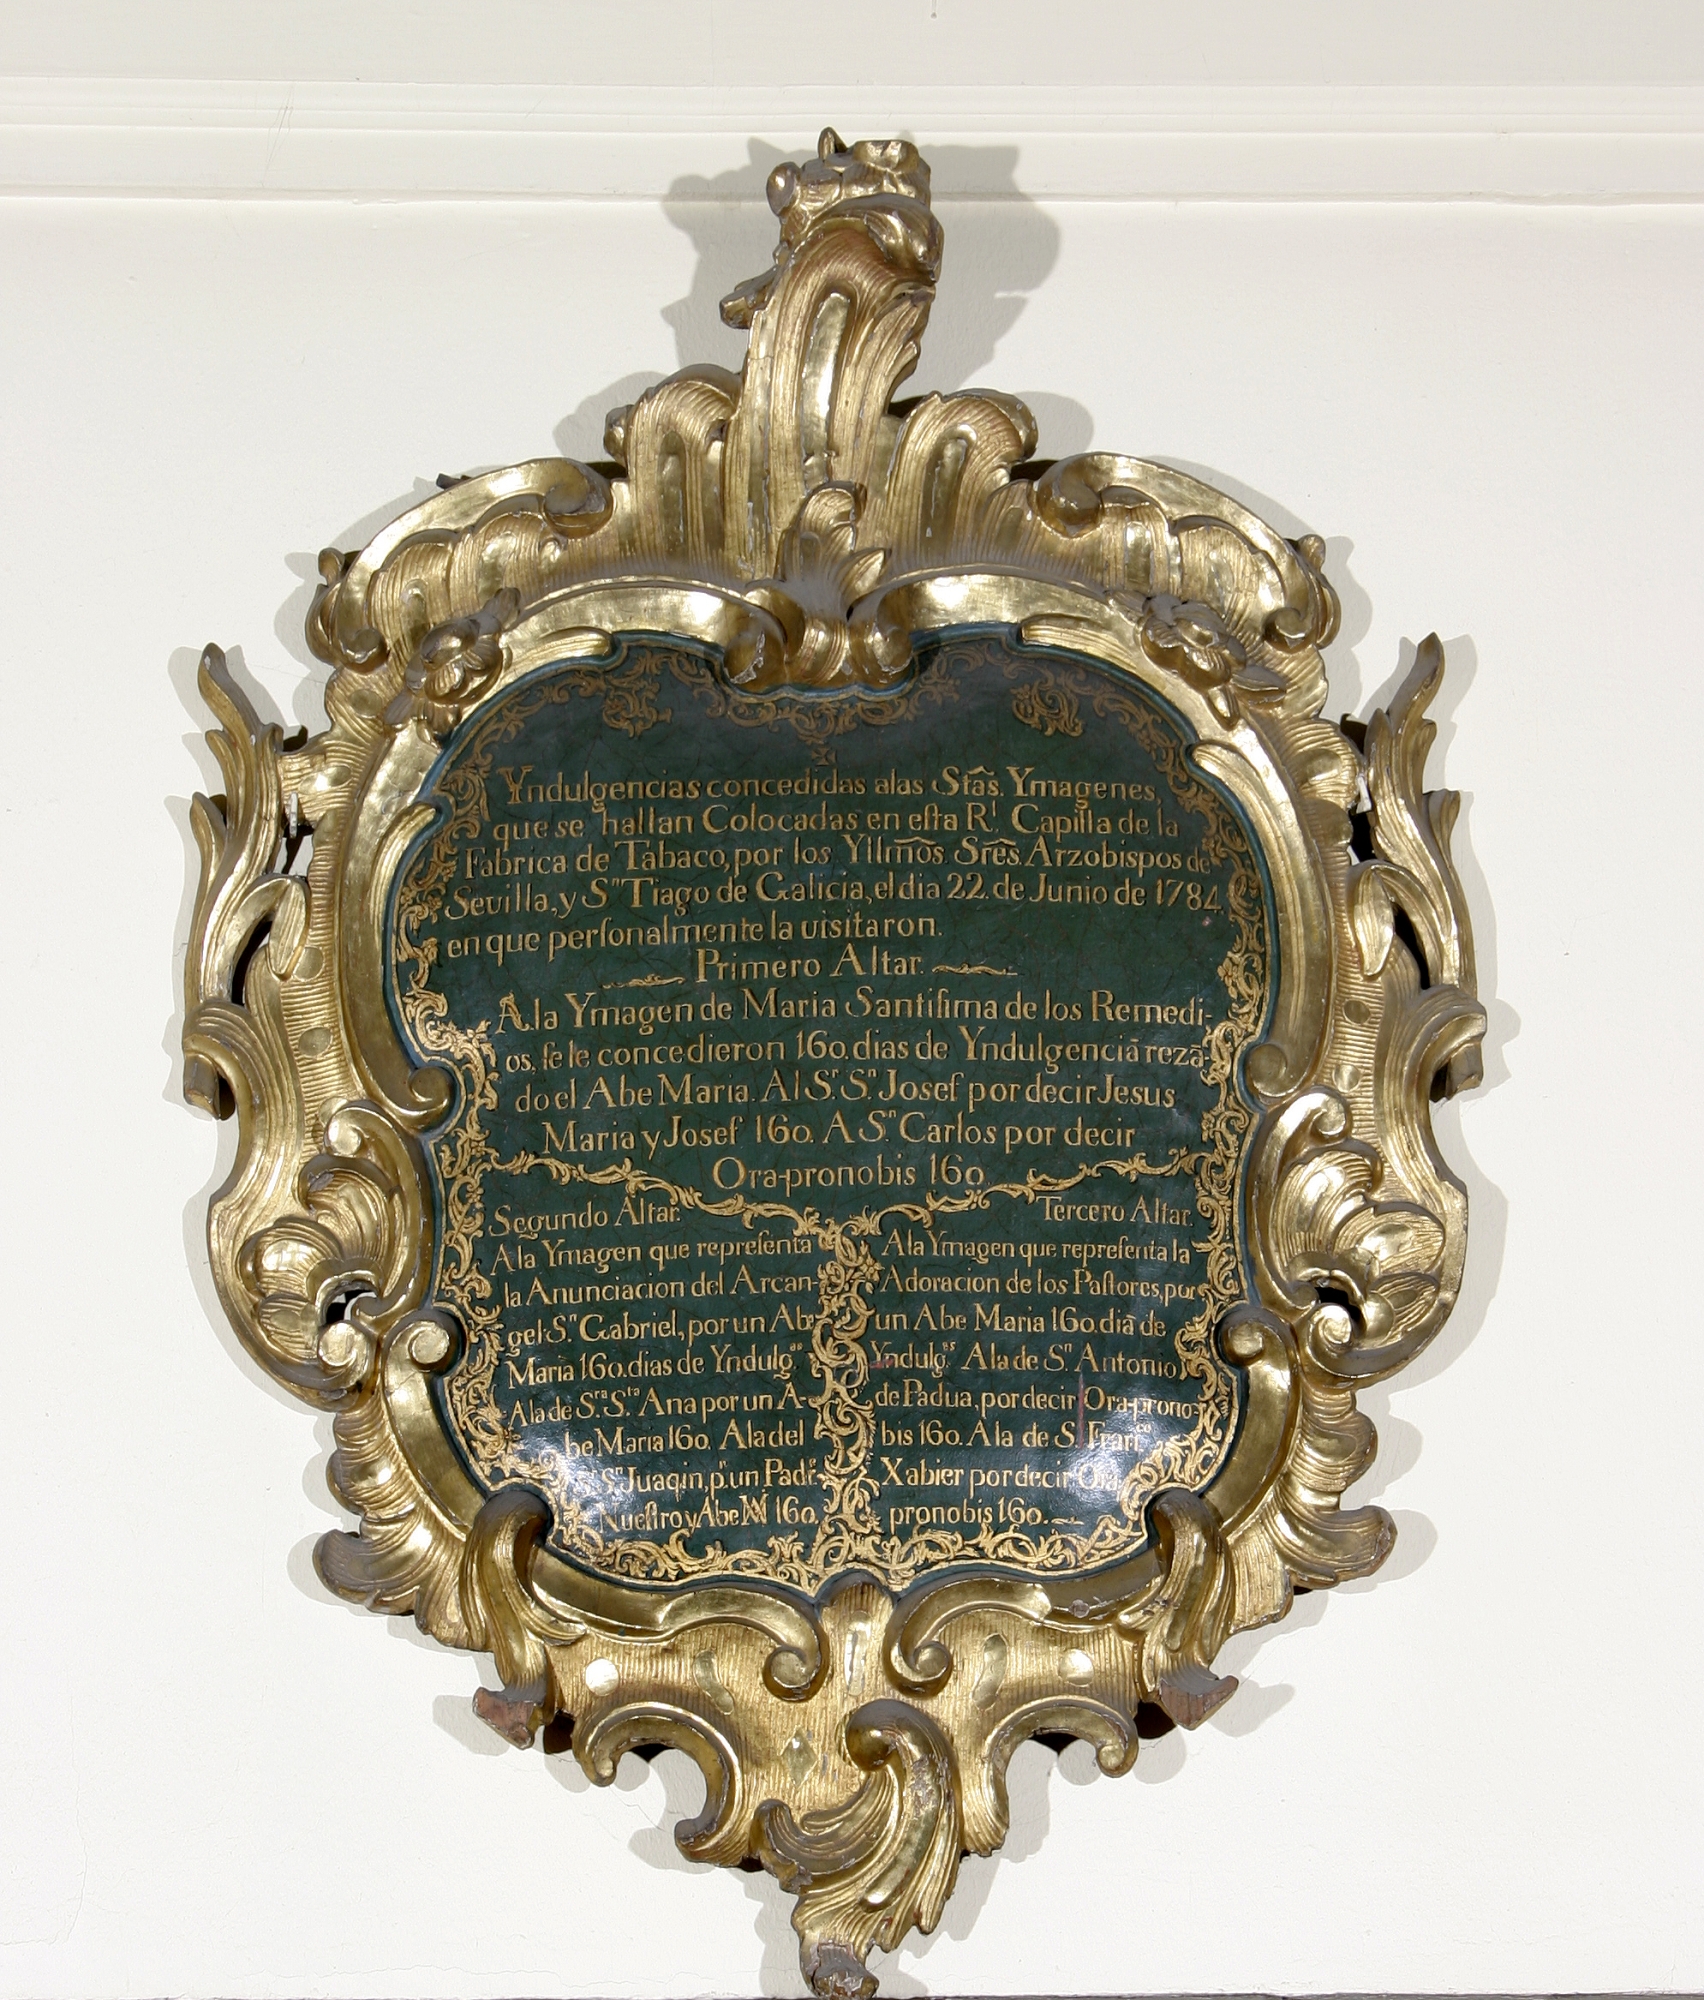 Yndulgencias concedidas alas Stâs. Ymagenes,
que se hallan Colocadas en eſta Rˡ. Capilla de la
Fabrica de Tabaco, por los Yllm̃os. Srês. Arzobispos de
Sevilla, y Sⁿ Tiago de Galicia, el dia 22. de Junio de 1784.
en que perſonalmente la visitaron.
Primero Altar.
A la Ymagen de Maria Santiſima de los Remedi-
os, ſe le concedieron 160. dias de Yndulgenciā rezā-
do el Abe Maria. Al Sʳ. Sⁿ Josef por decir Jesus
Maria y Josef 160. A Sⁿ. Carlos por decir
Ora-pronobis 160.
Segundo Altar.
Ala Ymagen que repreſenta
la Anunciacion del Arcan-
gel Sⁿ Gabriel, por un Abe
Maria 160. dias de Yndulg.ᵉˢ
Ala de Sʳᵃ. Sᵗᵃ Ana por un A-
be Maria 160. Ala del
Sⁿ Juaqin, pʳ. un Padᵉ
Nueſtro y Abe M 160.
Tercero Altar.
Ala Ymagen que repreſenta la
Adoracion de los Paſtores, por
un Abe Maria 160. diā de
Yndulg.ᵉˢ Ala de Sⁿ Antonio
de Padua, por decir Ora-prono-
bis 160. Ala de S. Franᶜᵒ
Xabier por decir Ora
pronobis 160.